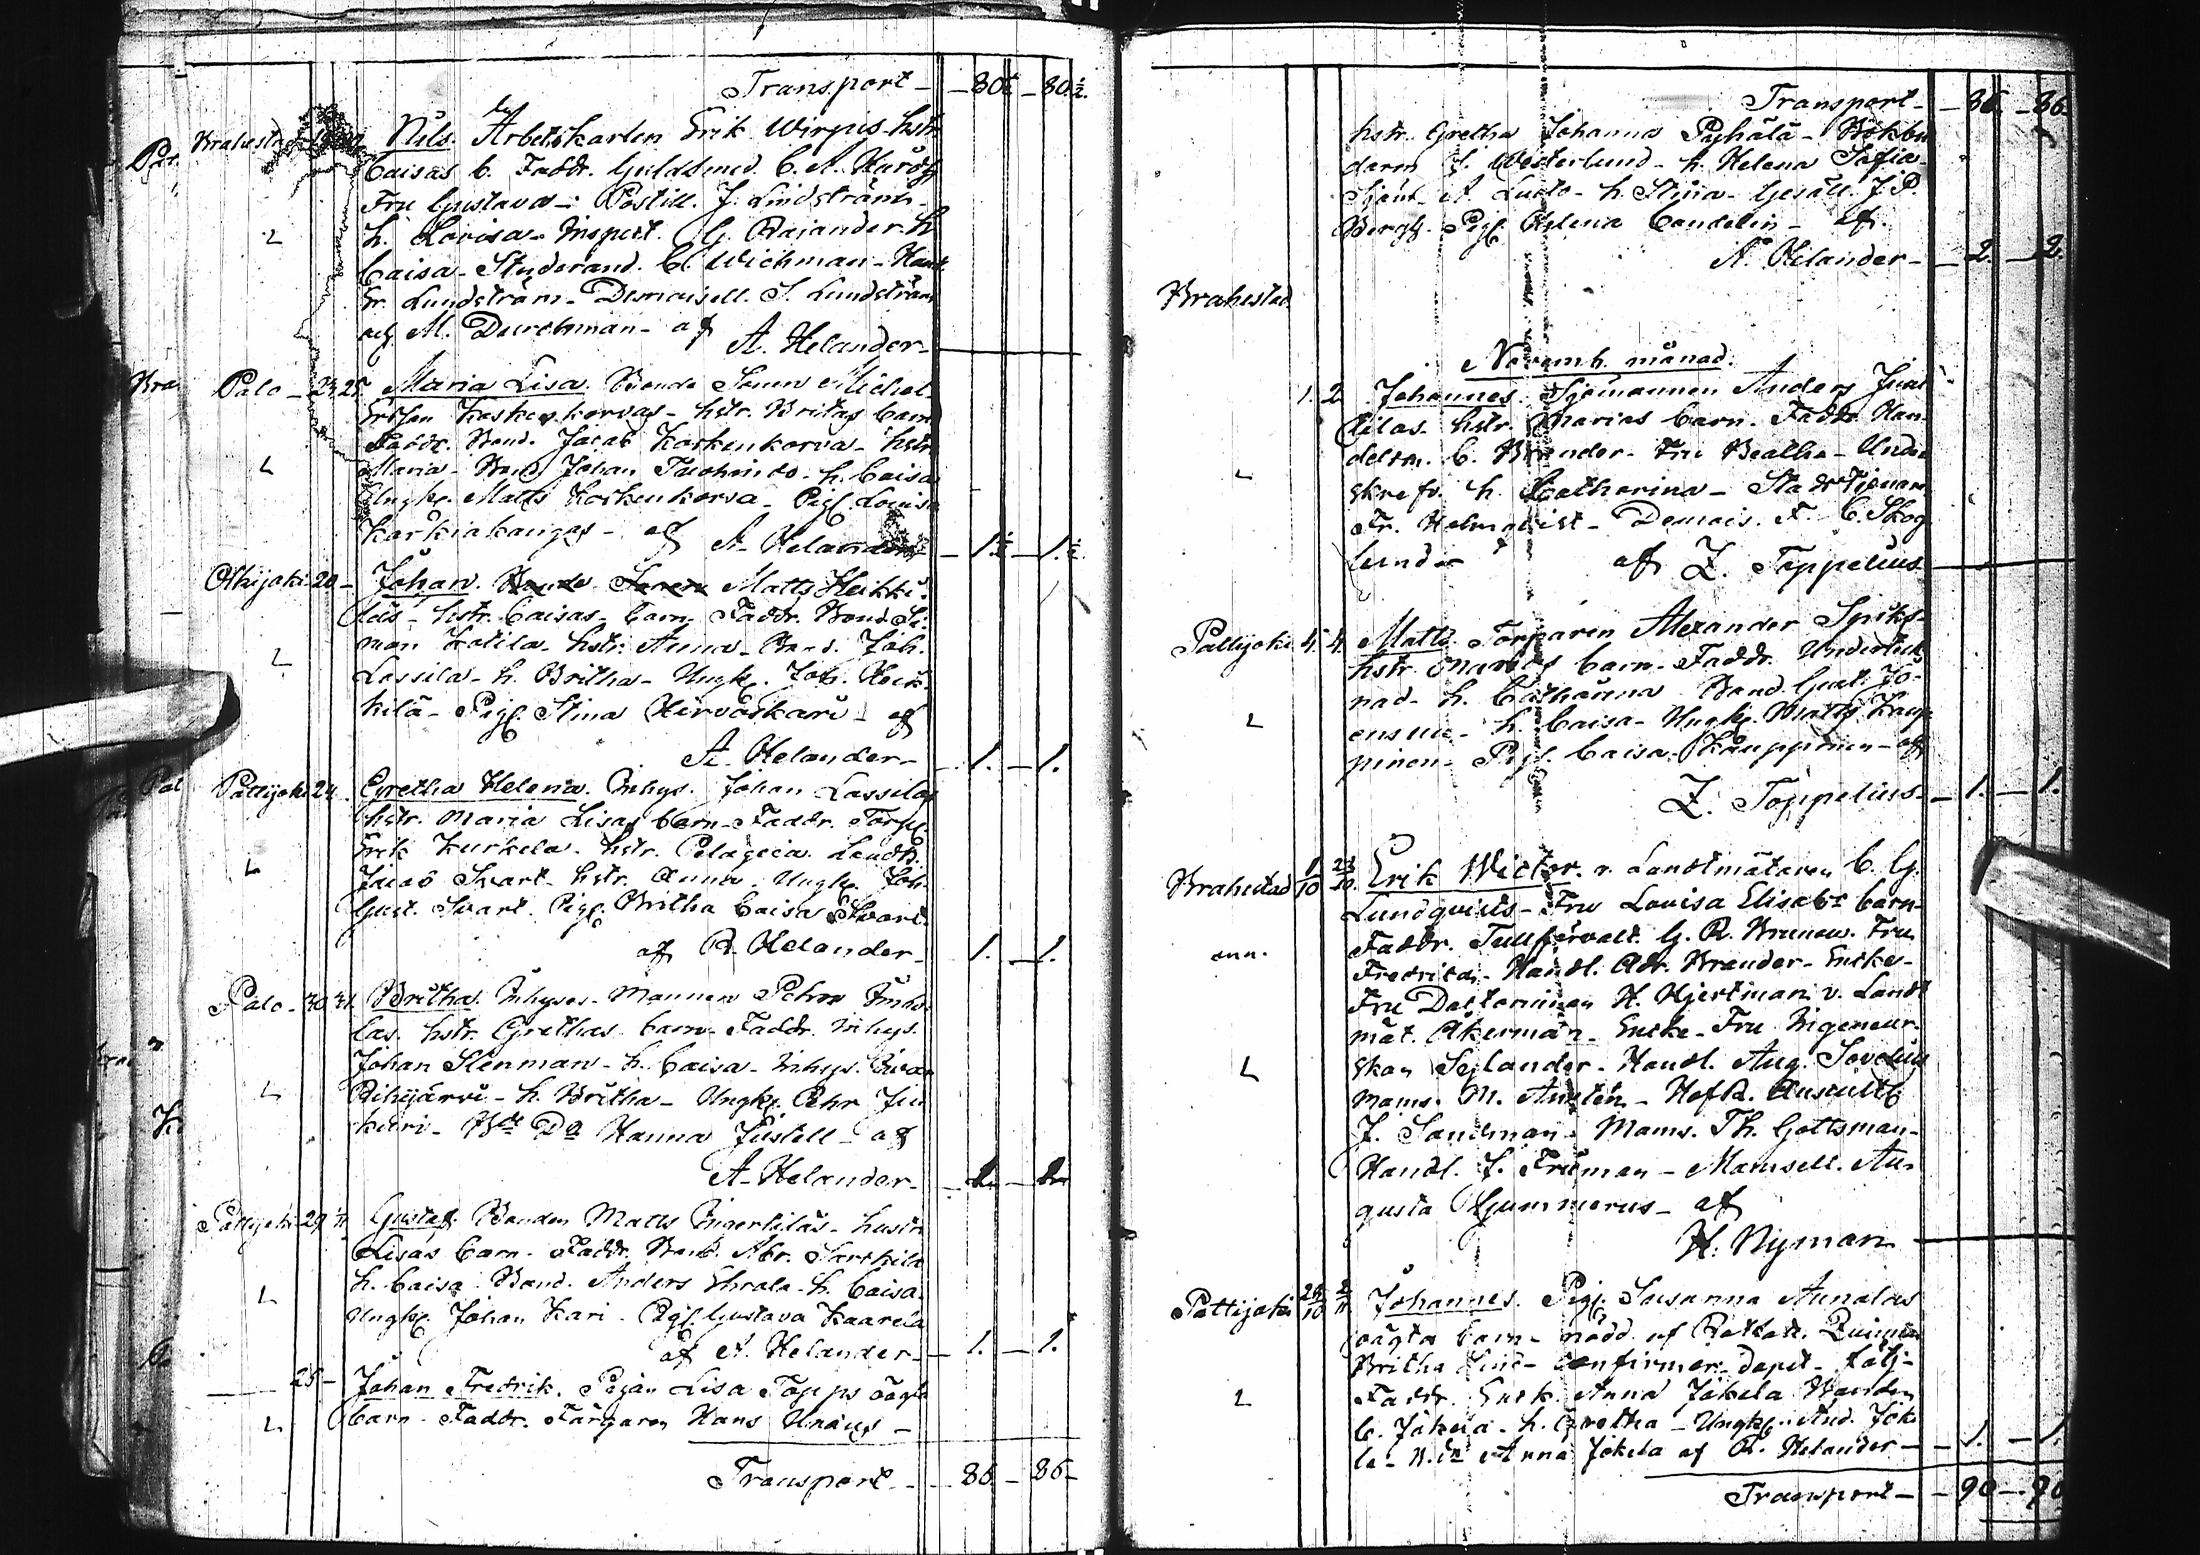 Transport - 80½ - 80½.
Brahestad Nils. Arbetskarlen Erik Wirpis hstr
Caisas b. Faddr. Guldsmed. C. A.
Fru Gustava - Postill. J. Lindström
h. Lovisa - Inspect. G. Rajander h
Caisa - Studerand. Cl. Wichman -
Fr. Lundström - Demoisell. S. Lundström
M. Durchman - af
A. Helander -
Palo - 24 25 Maria Lisa. Bonde Sonen Michel
hstr. Britas barn
Faddr. Bond. Jacob Koskenkorva - hstr
Maria - Bond Johan h. Caisa
Ungk. Matts Koskenkorva - Pig. Lovisa
Karhiakangas - af A. Helander - 1½ - 1½
Olkijoki 20 - Johan. Bonde Sonen Matts Heikki
läs - hstr. Caisas - barn - Faddr. Bond Si
mon Kotila - hstr. Anna - Bond. Joh.
Lassila - h. Britha - Ungk. Joh. Heik
kilä - Pig. Stina Hirväskari - af
A. Helander - 1. - 1.
Pattijoki 24 Gretha Helena. Inhys. Johan Lassilas
hstr. Maria Lisas barn - Faddr. Torp.
Erik Kurkela - hstr. Pelageia.
Jacob Svart - hstr. Anna - Ungk. Joh.
Gust. Svart. Pig. Britha Caisa Svart
af A. Helander - 1. - 1.
Palo - 30 31. Britha. Inhyses - Mannen Petter
las. hstr. Grethas barn - Faddr. Inhys.
Johan Stenman - h. Caisa - Inhys. Iivar
Pihijärvi - h. Britha - Ungk. Pehr Juu
kuri - Hanna Justell - af
A. Helander -
Pattijoki 29 Gustaf. Bonden Matts hustr
Lisas barn - Faddr. Bond. Abr. Sarkkila
h. Caisa Bond. Anders h. Caisa
Ungk. Johan Kari - Pig. Gustava Kaarela
af A. Helander - 1. - 1.
25 - Johan Fredrik. Pigan Lisa Topps oägta
barn - Faddr. Färgaren Hans Unaeus -
Transport - 86 - 86 -
Transport - 86 - 86
hstr. Gretha Johanna Pyhälä - Bokbin
daren J. Westerlund - h. Helena Sofia
Sjöm. A. Lusto - h. Stina - Gesäll. J. P.
Bergh. Pig. Helena Candelin - af
A. Helander - 2. - 2.
Brahestad
Novemb. månad.
1. 2 Johannes. Sjömannen Anders Junt
tilas - hstr. Marias barn. Faddr. Han
delsm. C. Brander - Fru Beatha - Under
skrefv. h. Catharina - Stadstjenar
Fr. Holmqvist - Demois. F. C. Skog
lund - af Z. Toppelius
Pattijoki 4. 4. Matts. Torparen Alexander Spiks
hstr. Marias barn - Faddr. Underteck
nad - h. Catharina Bond. Gust. Jo
ensuu - h. Caisa - Ungk. Matts Kaup
pinen - Pig. Caisa Kauppinen - af
Z. Toppelius - 1. - 1.
Brahestad 1/10 23/10. Erik Wictor. v. Landtmätaren C. G.
Lundqvists - Fru Lovisa Elisabt barn
Faddr. Tullförvalt. G. R. Brunow. Fru
Fredrika - Handl. Adr. Brander - Enke
Fru Doctorinnan H. Hjertman v. Landt
mät. Åkerman - Enke - Fru Ingenieur
skan Selander - Handl. Aug. Sovelius
Mams. M. Austén - HofR. Auscult
J. Sandman - Mams. Th. Gottsman
Handl. J. Friman - Mamsell. Au
gusta Gummerus - af
H. Nyman
Pattijoki 29/10 2/11 Johannes. Pig. Susanna Annalas
oägta barn - nödd. af Rattet. Quinnan
Britha Lind - confirmer. dopet - följ -
Faddr. Enk. Anna Jokela Bonden
C. Jokela - h. Gretha - Ungk. And. Joke
la - Anna Jokela af A. Helander - 1. - 1.
Transport - 90 - 90